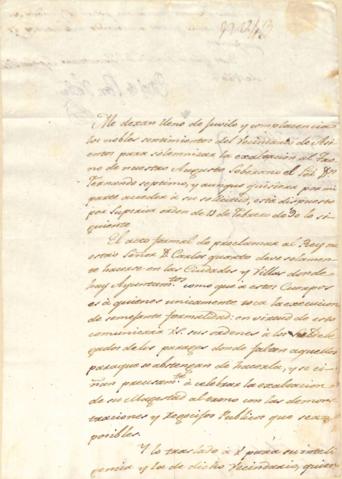 Me dexan lleno de Jubilo y complacencia
los nobles sentimientos del Vecindario de Asi-
entos para solemnizar la exaltacion al Tro-
no de nuestro Augusto Soberano el Sor. Dn.
Fernando septimo, y aunque quisiera por mi
parte acceder à su solicitud, està dispuesto
por Superior orden de 11 de Febrero de 90 lo si-
guiente.
El acto formal de proclamar al Rey nu-
estro Señor D. Carlos quarto deve solamen-
te hacerse en las Ciudades y Villas donde
hay Ayuntamtos. como que à estos Cuerpos
es à quienes unicamente toca la execucion
de semejante formalidad: en virtud de esto
comunicará V.S. sus ordenes à los Subdele-
gados de los parages donde faltan aquellos
para que se abstengan de hacerla, y se ci-
ñan precisamte. à celebrar la exaltacion
de su Magestad al trono con las demos-
traciones y regocijos Publicos que sean
posibles.
Y lo traslado à V. para su inteli-
gencia y la de dicho Vecindario, quien